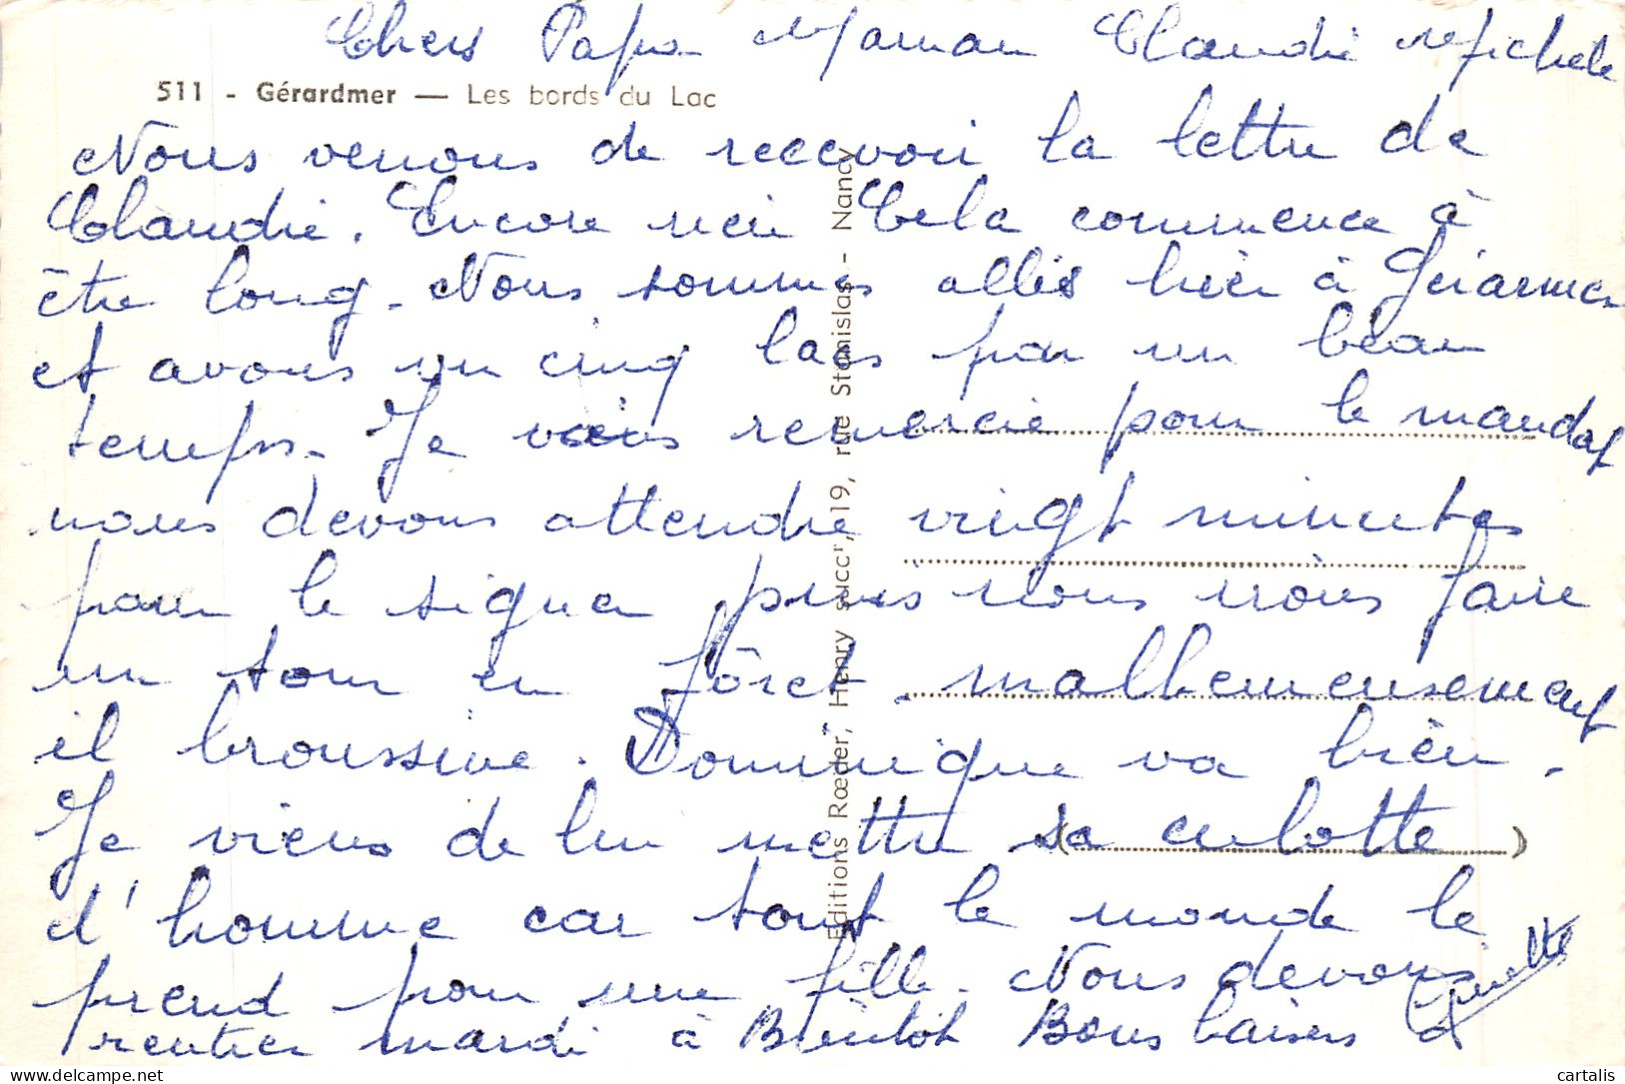 Chers Papa Maman Claudie Michele
511 - Gérardmer — Les bords du Lac
Nous venons de recevoir la lettre de
Claudie. Encore merci Cela commence à
être long. Nous sommes allés hier à Gérarmer
et avons vu cinq lacs par un beau
temps. Je vous remercie pour le mandat
nous devons attendre vingt minutes
pour le signer puis nous irons faire
un tour en fôret. malheureusement
il broussine. Dominique va bien.
Je viens de lui mettre sa culotte
d'homme car tout le monde le
prend pour une fille. Nous devons
rentrer mardi à Bientôt Bons baisers à
Editions Rœder, Henry succr, 19, rue Stanislas - Nancy
cartalis